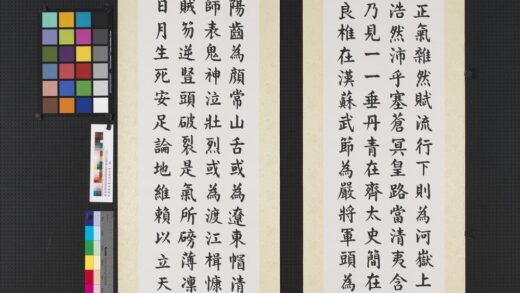 正氣雜然賦流行下則為河嶽上
浩然沛乎塞蒼冥皇路當清夷含
乃見一一垂丹青在齊太史簡在
良椎在漢蘇武節為嚴將軍頭為
陽齒為顏常山舌或為遼東帽清
師表鬼神泣壯烈或為渡江楫慷
賊笏逆豎頭破裂是氣所磅薄凜
日月生死安足論地維賴以立天